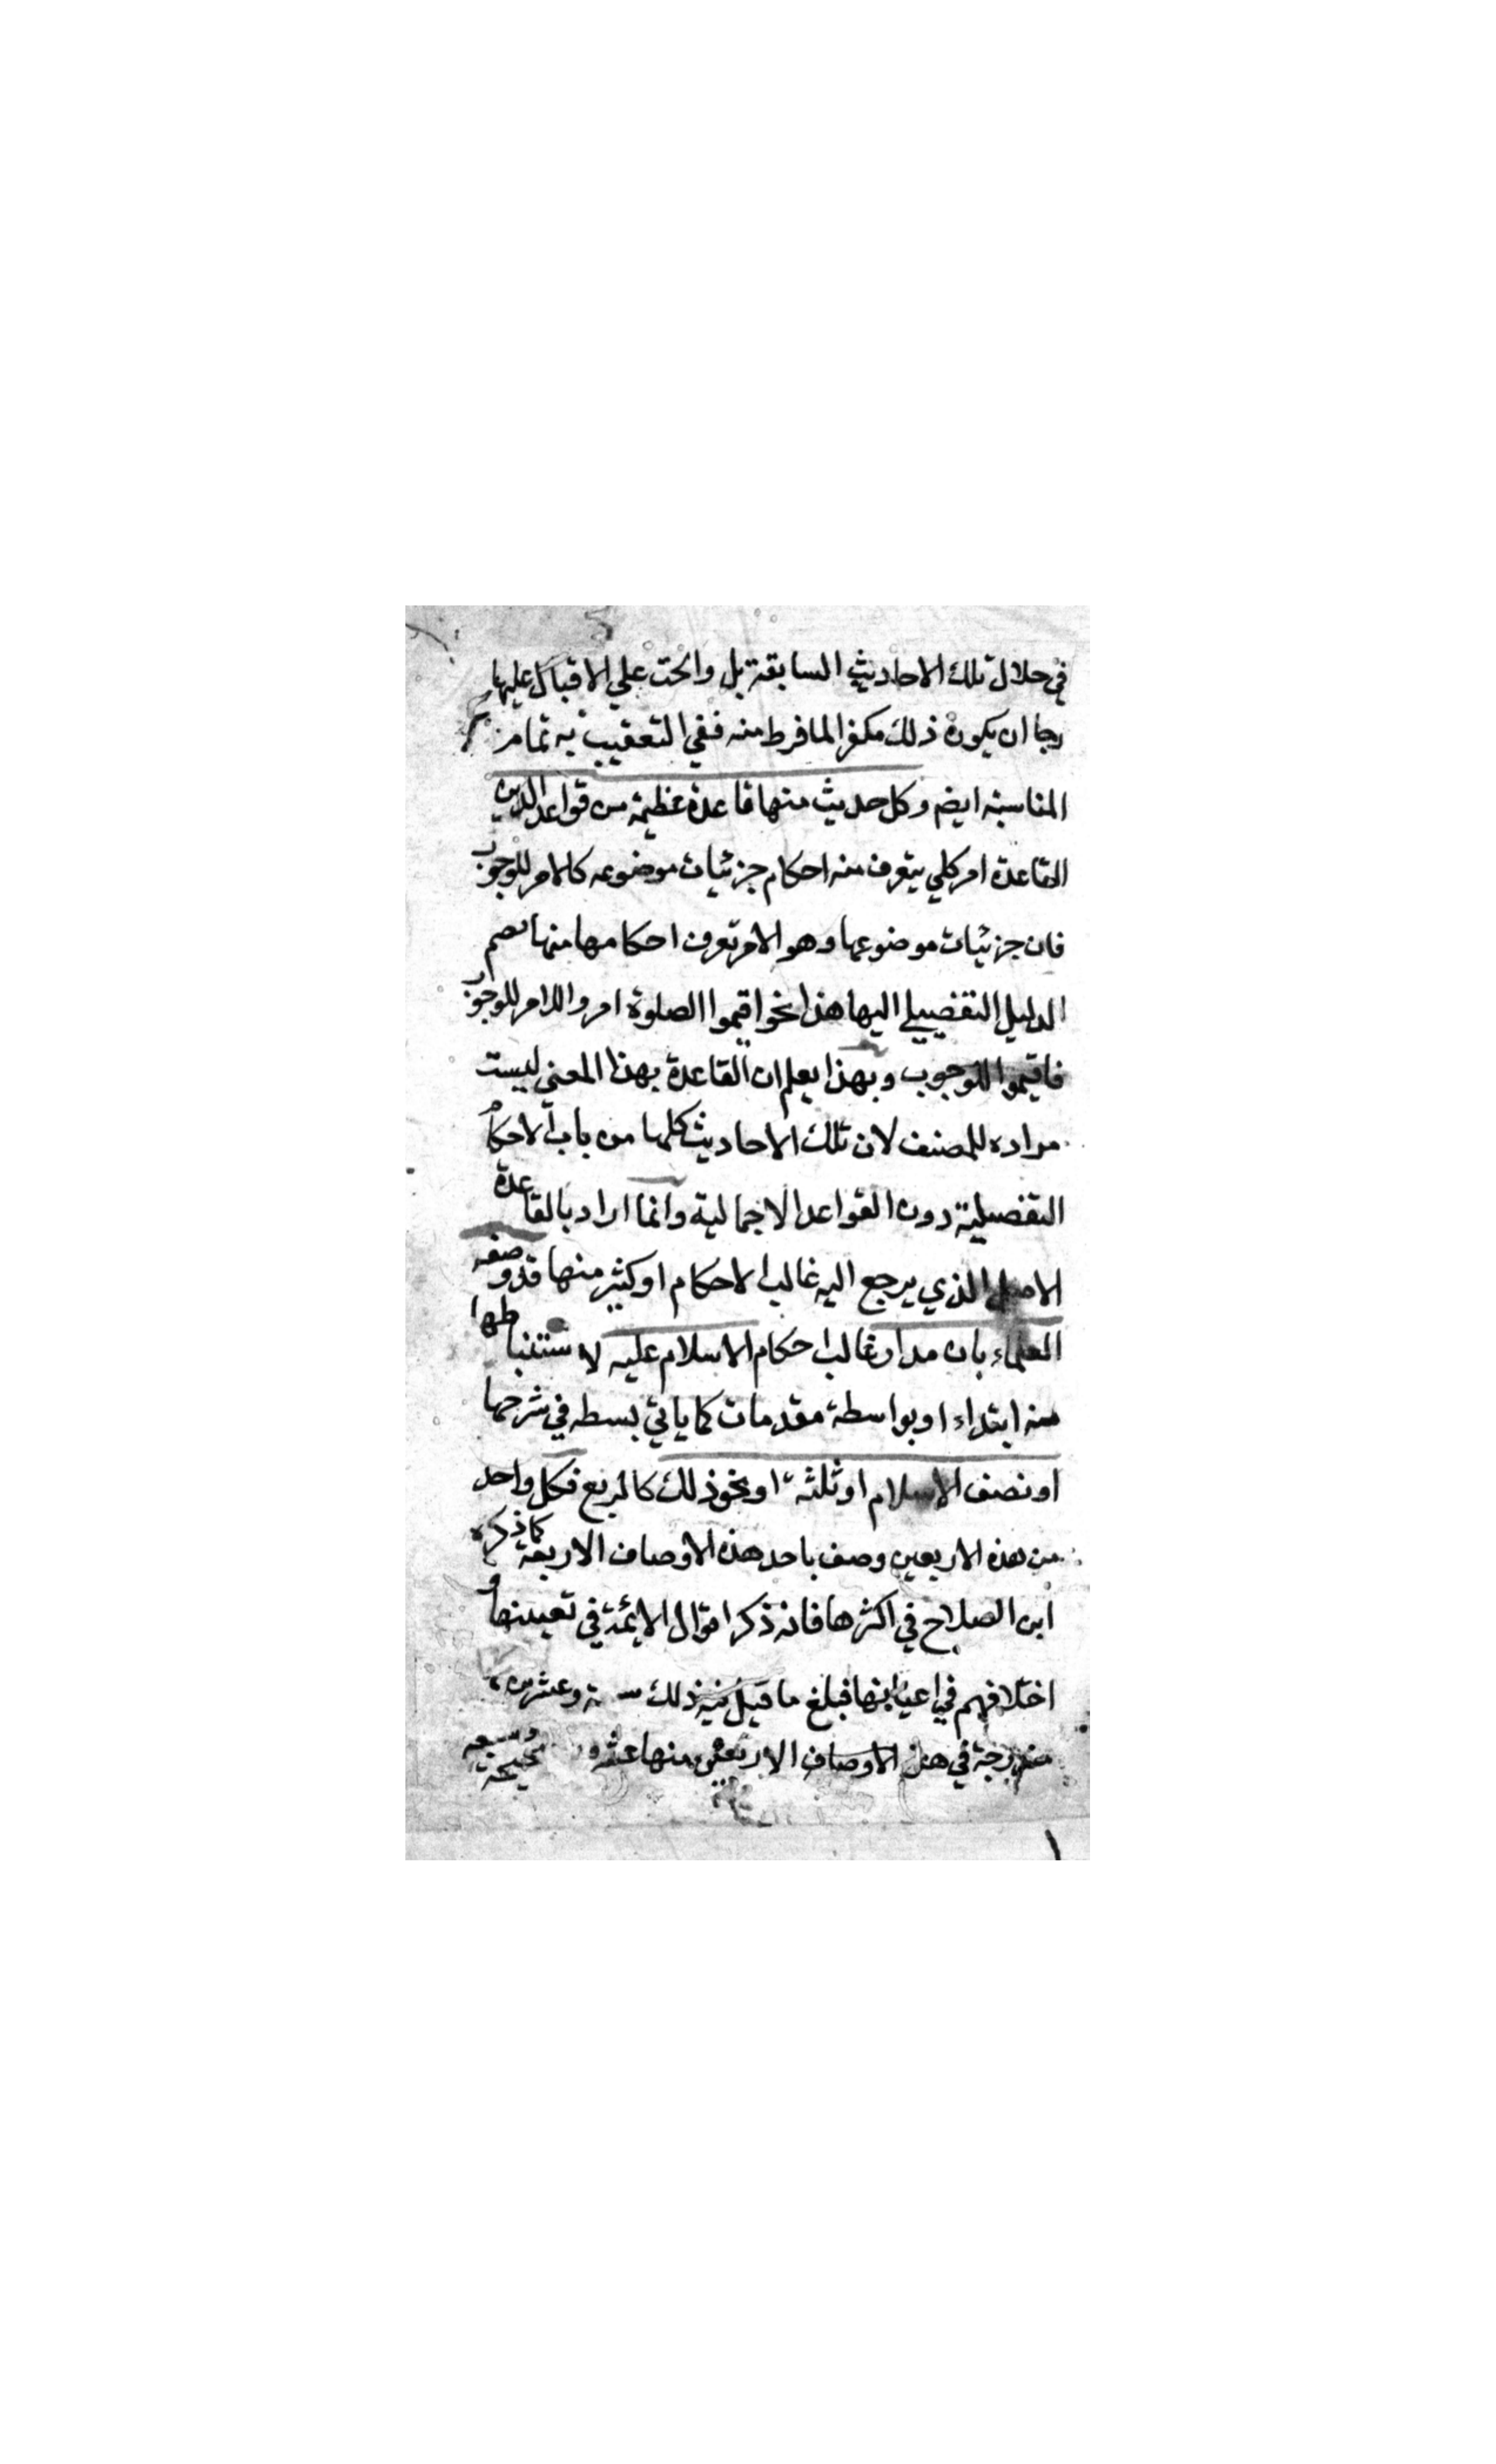 في خلال تلك الاحاديث السابقة بل والحث علي الاقبال عليها
رجا ان يكون ذلك مكفرا لما فرط منه ففي التعقيب به تمام
المناسبة ايضم وكل حديث منها قاعدة عظيمة من قواعد الدين
القاعدة امر كلي يتعرف منه احكام جزئيات موضوعه كالامر للوجوب
فان جزئيات موضوعها وهو الامر تعرف احكامها منها بضم
الدليل التفضيلي اليها هذا نحو اقيموا الصلوة امر والامر للوجوب
فاقيموا للوجوب وبهذا يعلم ان القاعدة بهذا المعني ليست
مراده للمصنف لان تلك الاحاديث كلها من باب الاحكام
التفصيلية دون القواعد الاجمالية وانما اراد بالقاعدة
الاصل الذي يرجع اليه غالب الاحكام او كثير منها قد وصفه
العلماء بان مدار غالب احكام الاسلام عليه لاستنباطها
منه ابتداء او بواسطة مقدمات كما ياتي بسطه في شرحها
او نصف الاسلام او ثلثه او نحو ذلك كالربع فكل واحد
من هذه الاربعين وصف باحد هذه الاوصاف الاربعة كما ذكره
ابن الصلاح في اكثرها فانه ذكر اقوال الايمة في تعيينها و
اختلافهم في اعيانها فبلغ ما قيل فيه ذلك ستة وعشرين
مندرجة في هذه الاوصاف الاربعة منها عشرون